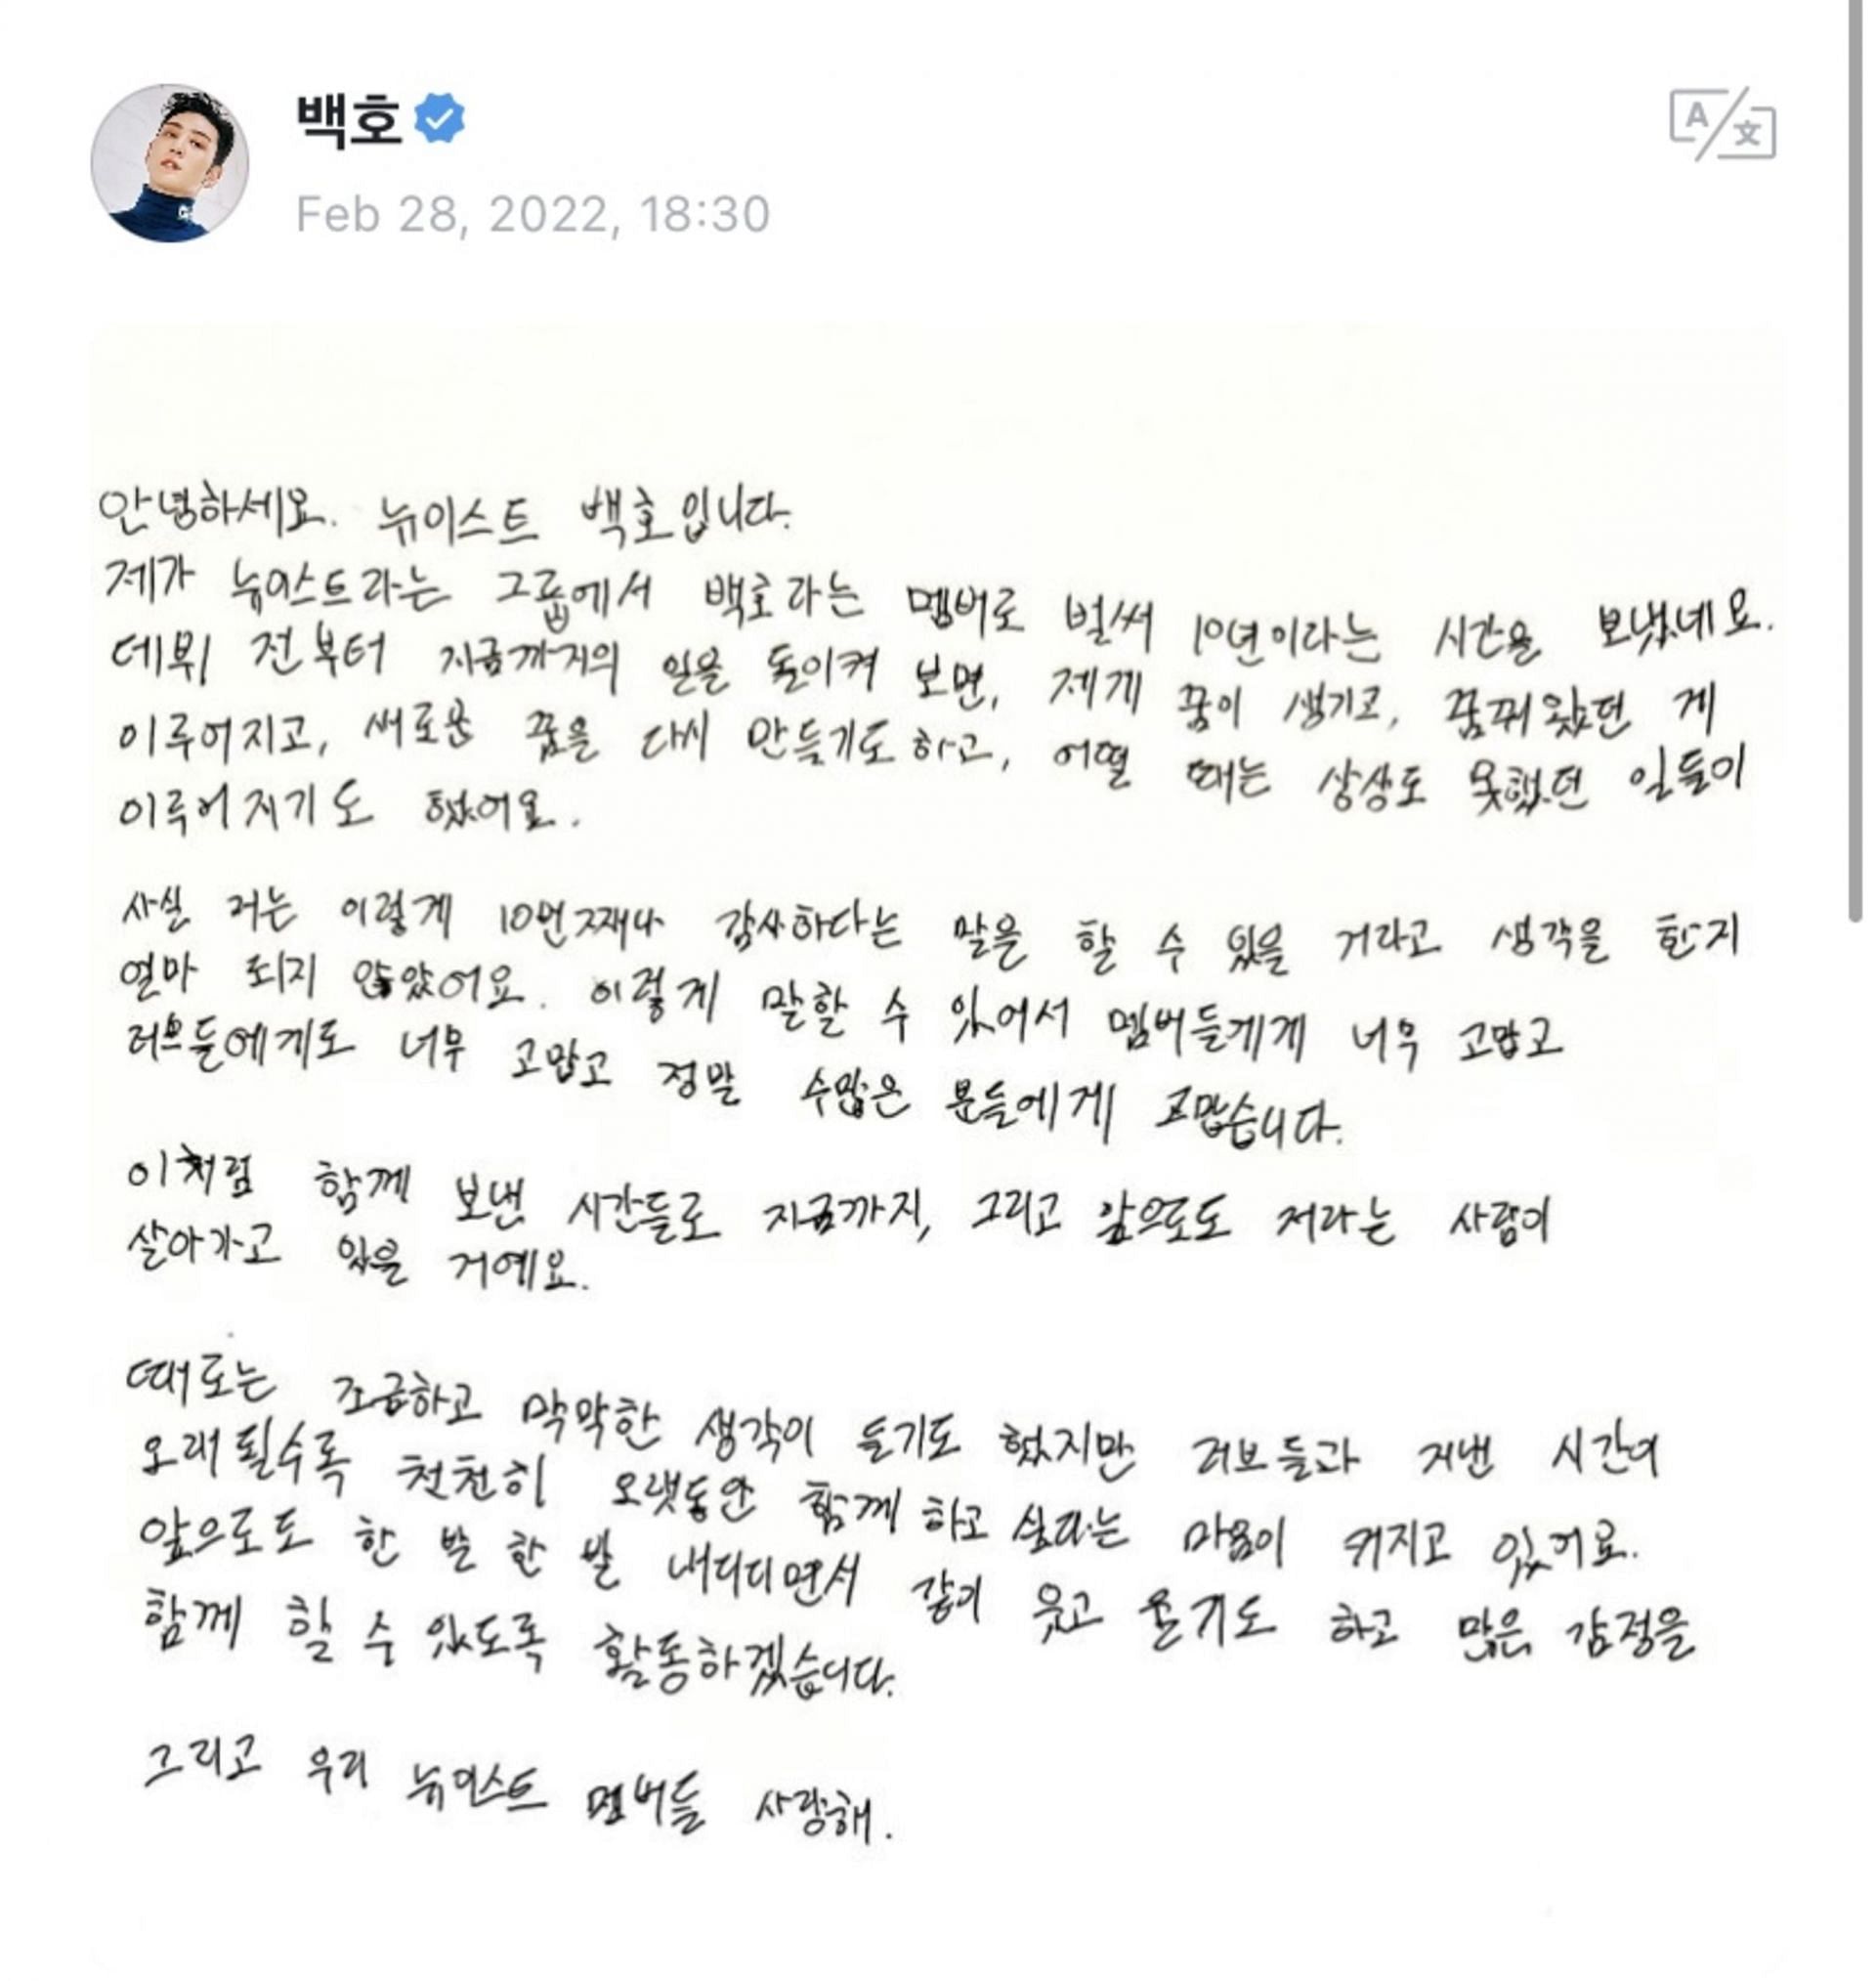 백호
Feb 28, 2022, 18:30
A 文
안녕하세요. 뉴이스트 백호입니다.
제가 뉴이스트라는 그룹에서 백호라는 멤버로 벌써 10년이라는 시간을 보냈네요.
데뷔 전부터 지금까지의 일을 돌이켜 보면, 제게 꿈이 생기고, 꿈꿔왔던 게
이루어지고, 새로운 꿈을 다시 만들기도 하고, 어떨 때는 상상도 못했던 일들이
이루어지기도 했어요.
사실 저는 이렇게 10번째나 감사하다는 말을 할 수 있을 거라고 생각을 한지
얼마 되지 않았어요. 이렇게 말할 수 있어서 멤버들게게 너무 고맙고
러브들에게도 너무 고맙고 정말 수많은 분들에게 고맙습니다.
이처럼 함께 보낸 시간들로 지금까지, 그리고 앞으로도 저라는 사람이
살아가고 있을 거예요.
때로는 조급하고 막막한 생각이 들기도 했지만 러브들과 지낸 시간이
오래될수록 천천히 오랫동안 함께 하고 싶다는 마음이 커지고 있어요.
앞으로도 한 발 한 발 내디디면서 같이 웃고 울기도 하고 많은 감정을
함께 할 수 있도록 활동하겠습니다.
그리고 우리 뉴이스트 멤버들 사랑해.